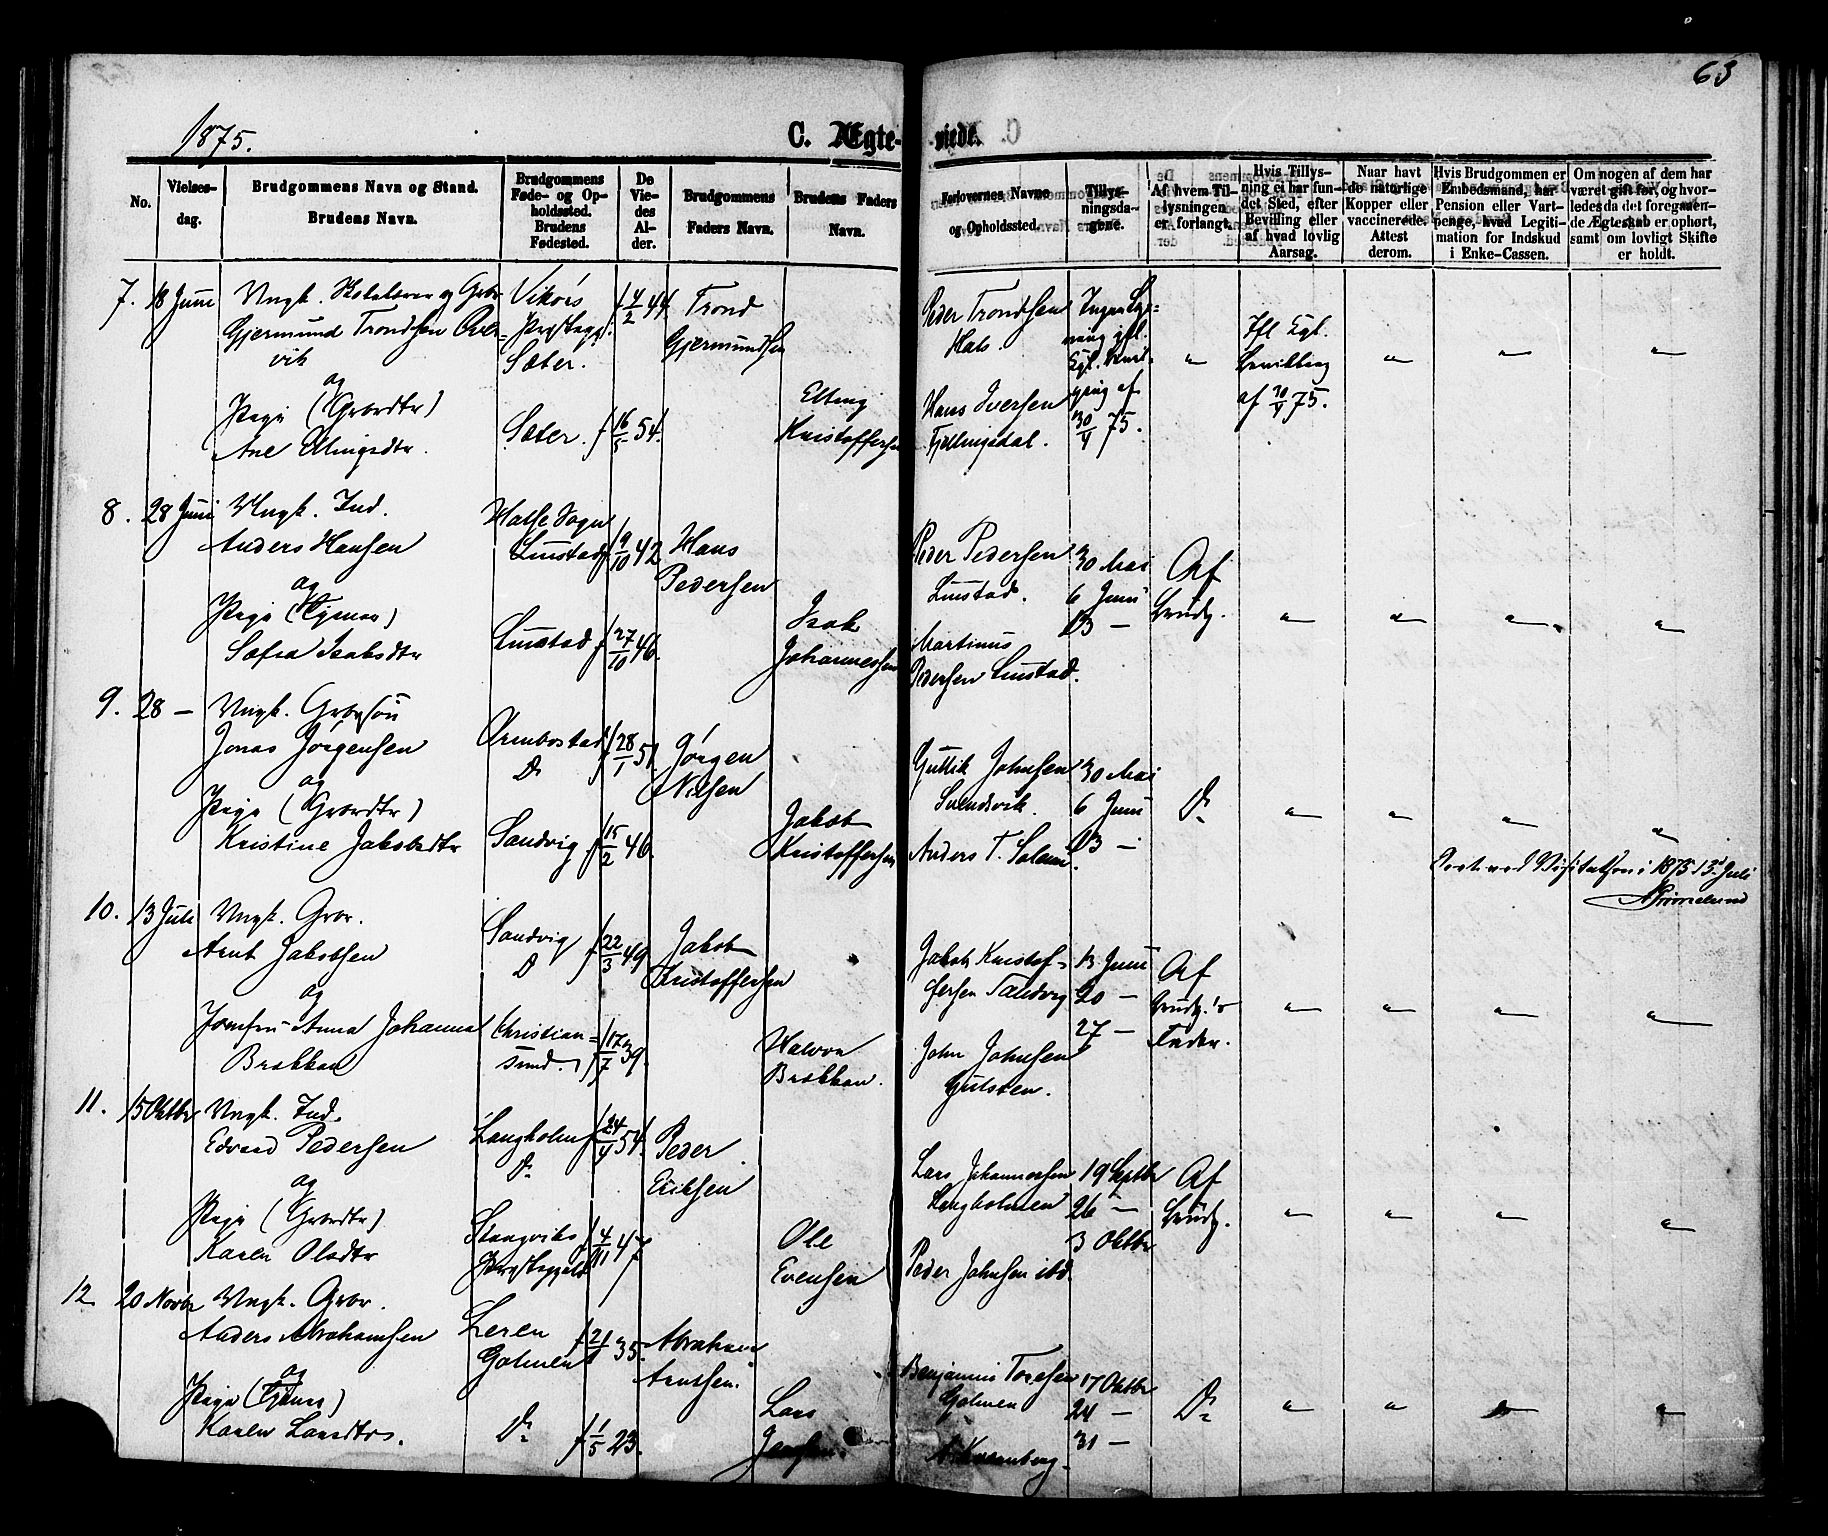 63
1875.
C. Ægte-viede.
No.
Vielses-
dag.
Brudgommens Navn og Stand.
Brudens Navn.
Brudgommens
Føde- og Op-
holdssted.
Brudens
Fødested.
De
Vie-
des
Al-
der.
Brudgommens
Faders Navn.
Brudens Faders
Navn.
Forlovernes Navne
og Opholdssted.
Tillys-
ningsda-
gene.
Af hvem Til-
lysningen
er forlangt.
Hvis Tillys-
ning ei har fun-
det Sted, efter
Bevilling eller
af hvad lovlig
Aarsag.
Naar havt
de naturlige
Kopper eller
vaccinerede.
Attest
derom.
Hvis Brudgommen er
Embedsmand, har
Pension eller Vart-
penge, hvad Legiti-
mation for Indskud
i Enke-Cassen.
Om nogen af dem har
været gift før, og hvor-
ledes da det foregaaen-
de Ægteskab er ophørt,
samt om lovligt Skifte
er holdt.
7. 18 Juni Ungk. og Grbr
Gjermund Trondsen
vik
og
Pige (Grbrdtr)
Ane Ellingsdtr.
Præstegj.
Sæter.
Sæter.
f 4/2 44.
f 16/5 54.
Trond
Gjermundsen
Elling
Kristoffersen
Peder Trondsen
Hals.
Hans Iversen
Fjellingsdal.
Ingen Lys-
ning ifl.
Kgl. Bevil-
ging af
30/V 75.
"
Ifl Kgl.
Bevilling
af 30/V 75.
" " "
8. 28 Juni Ungk. Ind.
Anders Hansen
og
Pige (Tjener)
Sofia Isaksdtr
Halse Sogn
Liustad
Liustad
f 9/10 42
f 27/10 46.
Hans
Pedersen
Isak
Johannessen
Peder Pedersen
Liustad.
Martinus
Pedersen Liustad.
30 Mai
6 Juni
13 —
Af
Brudg.
" " " "
9. 28 — Ungk. Grbrsøn
Jonas Jørgensen
og
Pige (Grbrdtr)
Kristine Jakobsdtr
Ormbostad
Do
Sandvig
f 28/1 51.
f 15/2 46.
Jørgen
Nilsen
Jakob
Kristoffersen
Guttik Johnsen
Svendsvik.
Anders T. Solem.
30 Mai
6 Juni
13 —
Do
" " " "
ved Visitatsen i 1875 13 Juli
10. 13 Juli Ungk. Grbr.
Arnt Jakobsen
og
Jomfru Anna Johanna
Brækkan
Sandvig
Do
Christian-
sund.
f 22/3 49
f 17/7 39.
Jakob
Kristoffersen
Halvor
Brækkan.
Jakob Kristof-
fersen Sandvig
John Johnsen
Gulsten.
13 Juni
20 —
27 —
Af
Brudg.'s
Fader.
" " " "
11. 15 Oktbr Ungk. Ind.
Edvard Pedersen
og
Pige (Grbrdtr)
Karen Olsdtr
Langholm
Do
Stangviks
Præstegjeld
f 24/4 54.
f 4/11 47
Peder
Eriksen
Ole
Evensen
Lars Johannessen
Langholmen
Peder Johnsen ibd.
19 Septbr
26 —
3 Oktbr
Af
Brudg.
" " " "
12. 20 Novbr Ungk. Grbr.
Anders Abrahamsen
og
Pige (Tjener)
Karen Larsdtr.
Leren
Golmen
Do
35.
f 1/5 23.
Abraham
Arntsen.
Lars
Benjamin Toresen
Golmen
17 Oktbr
24 —
31 —
Do
" " " "